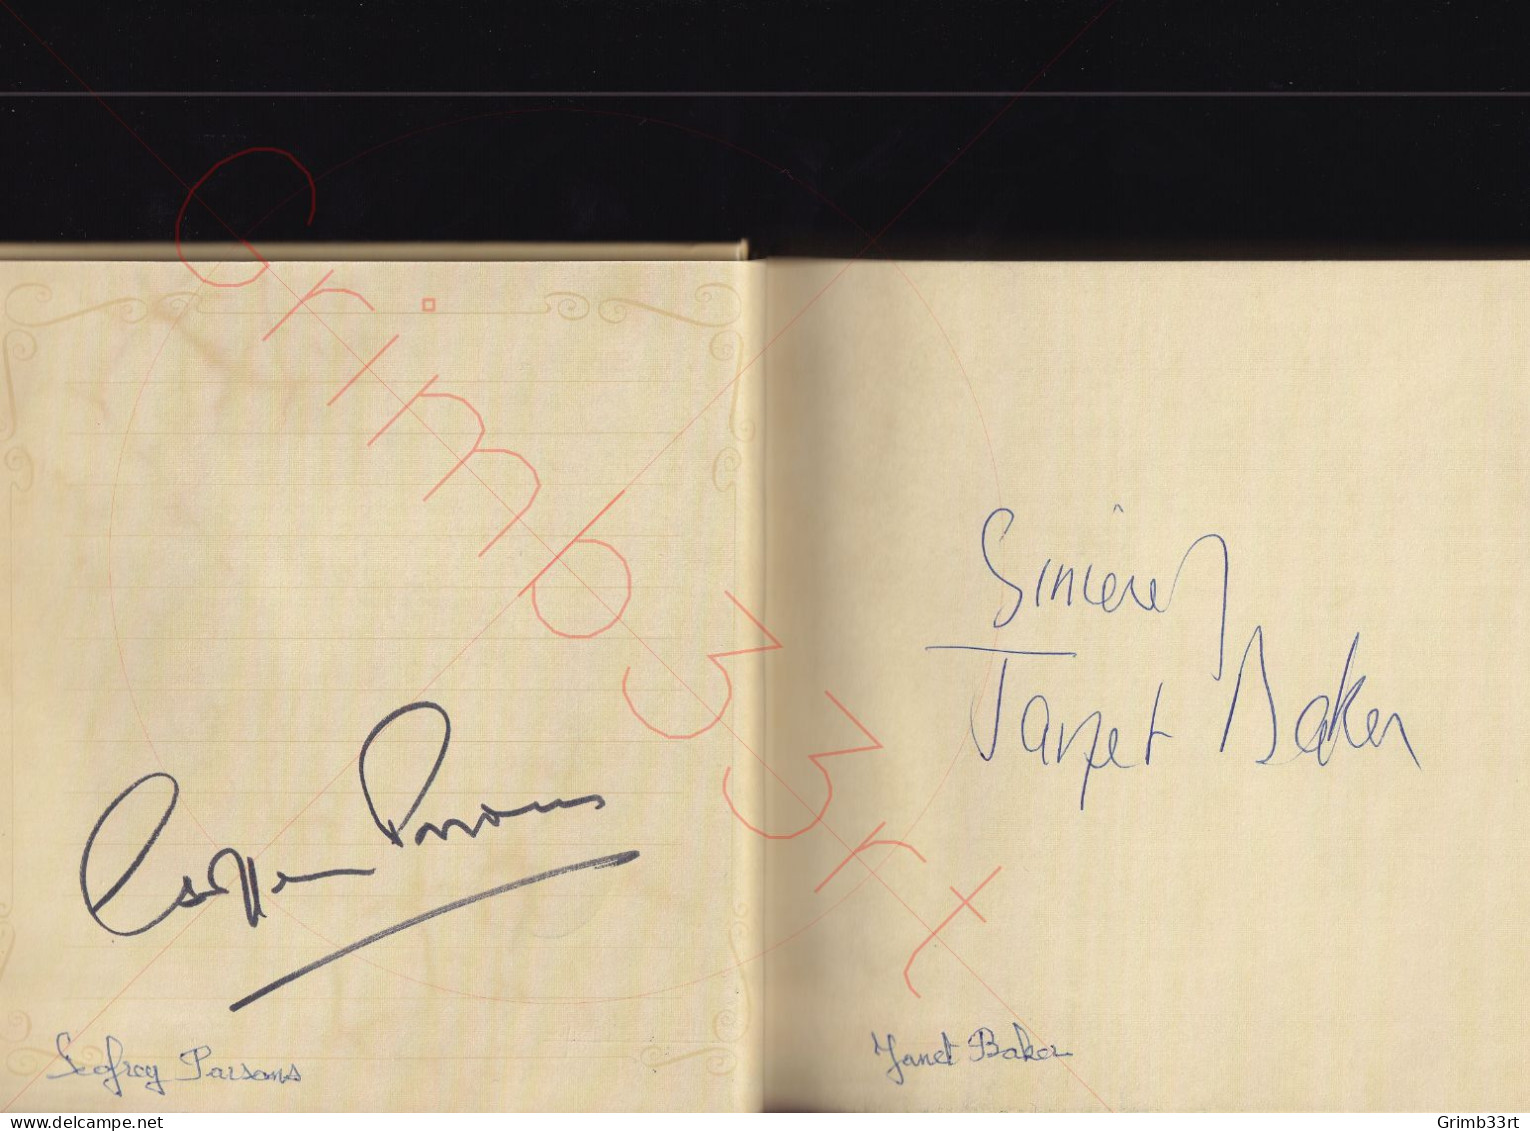 Geoffrey Parsons
Geofrey Parsons
Sincerely
Janet Baker
Janet Baker
Grimb33rt
delcampe.net
Grimb33rt